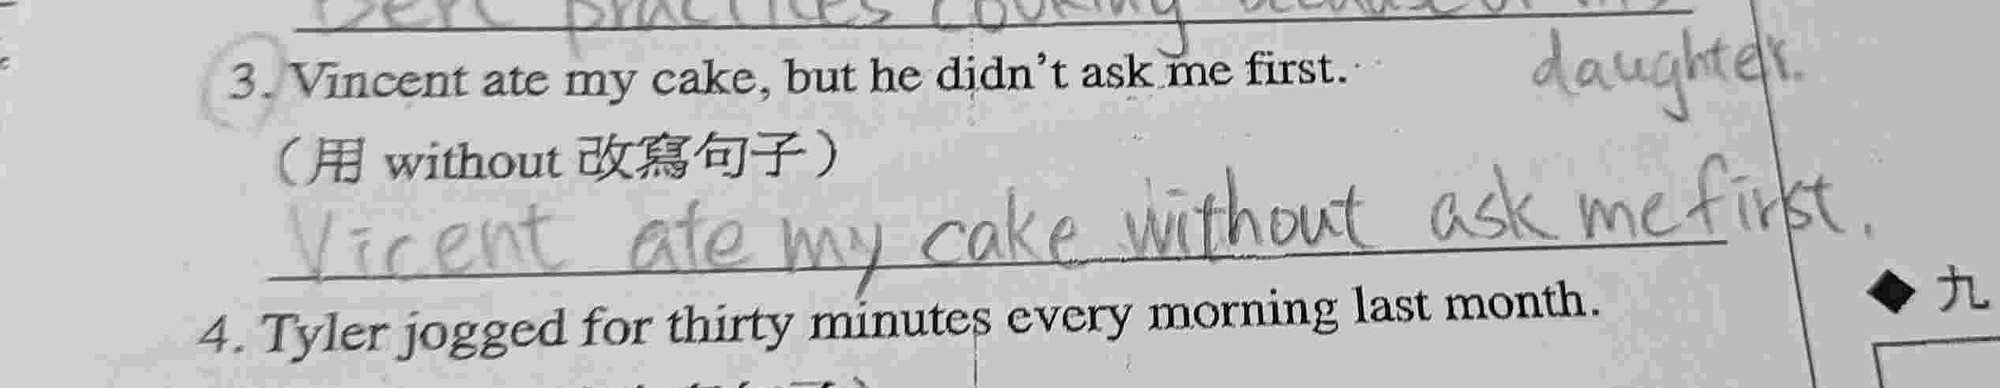 practices cooking because
3. Vincent ate my cake, but he didn't ask me first.
daughter.
(用 without 改寫句子)
Vicent ate my cake without ask me first.
4. Tyler jogged for thirty minutes every morning last month.
◆ 九